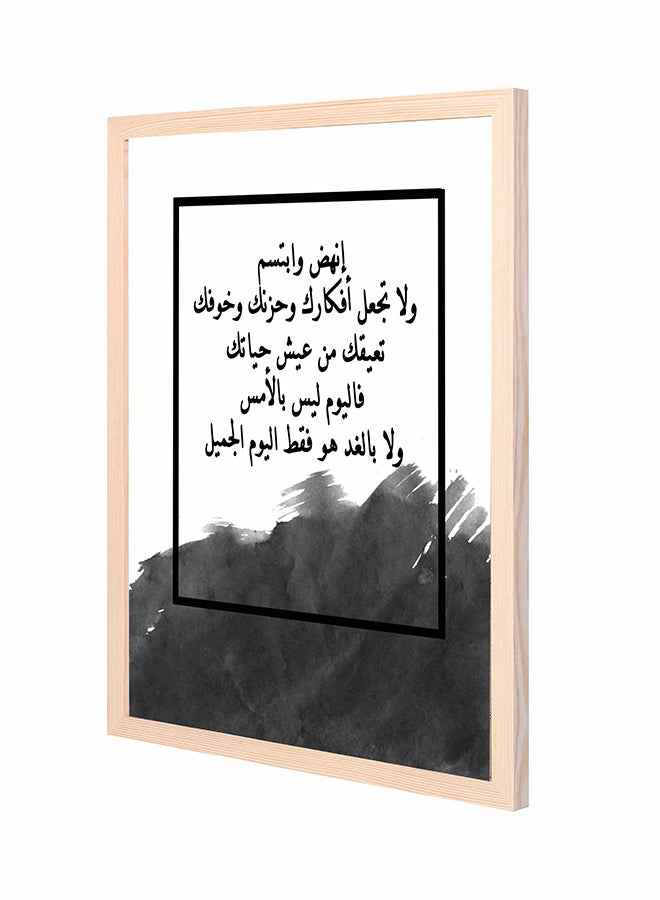 إنهض وابتسم
ولا تجعل أفكارك وحزنك وخوفك
تعيقك من عيش حياتك
فاليوم ليس بالأمس
ولا بالغد هو فقط اليوم الجميل